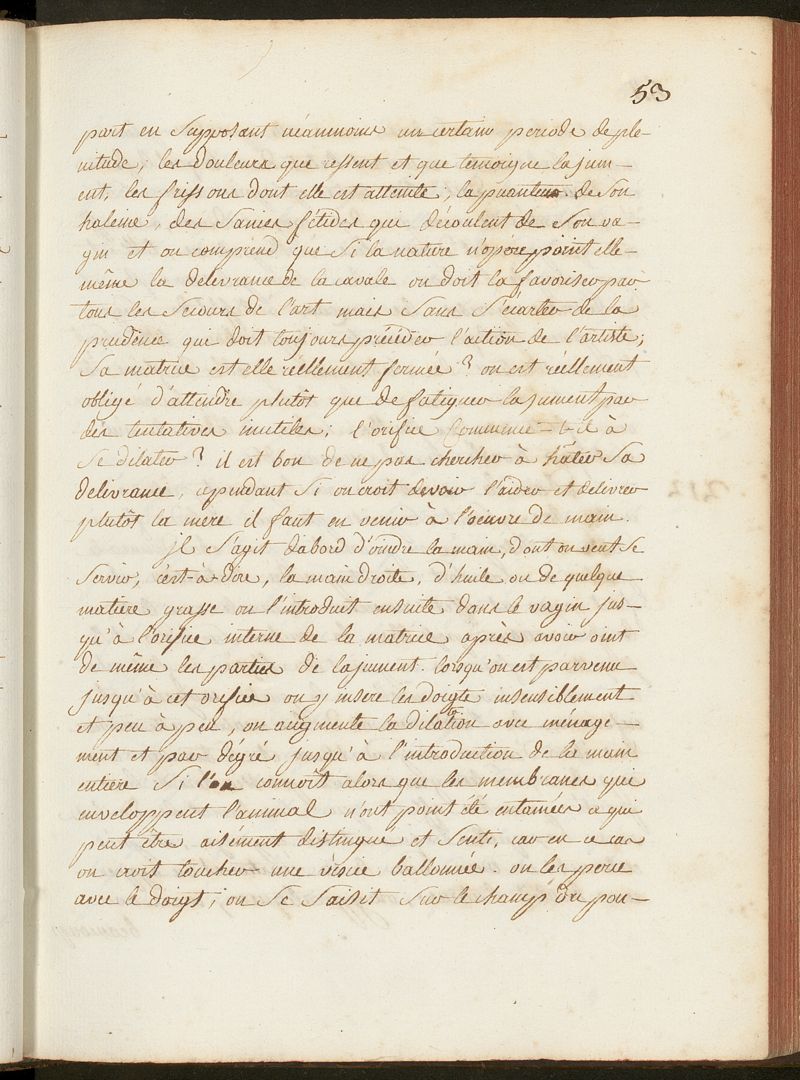 53
part en Supposant néanmoins un certain periode de plé-
nitude; les douleurs que ressent et que temoigne la jum-
ent, les frissons dont elle est atteinte; la puanteur de Son
haleine, des Sanies fétides qui découlent de Son va-
gin et on comprend que Si la nature n'opére point elle-
même la delivrance de la cavale on doit la favoriser par
tous les Secours de l'art mais Sans S'écarter de la
prudence qui doit toujours précéder l'action de l'artiste;
Sa matrice est elle réellement fermée? on est réellement
obligé d'attendre plutôt que de fatiguer la jument par
des tentatives inutiles; l'orifice Commence-t-il à
Se dilater? il est bon de ne pas chercher à hâter Sa
delivrance, cependant Si on croit devoir l'aider et delivrer
plutôt la mere il faut en venir à l'oeuvre de main.
jl S'agit dabord d'oindre la main, dont on veut Se
Servir, c'est-à-dire, la main droite, d'huile ou de quelque
matiere grasse on l'introduit ensuite dans le vagin jus-
qu'à l'orifice interne de la matrice après avoir oint
de même les parties de la jument. lorsqu'on est parvenu
jusqu'à cet orifice on y insere les doigts insensiblement
et peu à peu, on augmente la dilatation avec ménage-
ment et par dégré jusqu'à l'introduction de la main
entiere Si l'on connoit alors que les membranes qui
enveloppent l'animal n'ont point été entamées ce qui
peut être aisément distingué et Senti, car en ce cas
on croit toucher une véssie ballonnée. on les perce
avec le doigt; on Se Saisit Sur le champ du pou-